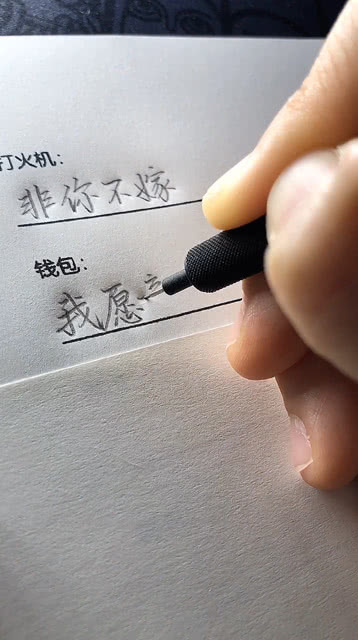 打火机：
非你不嫁
钱包：
我愿